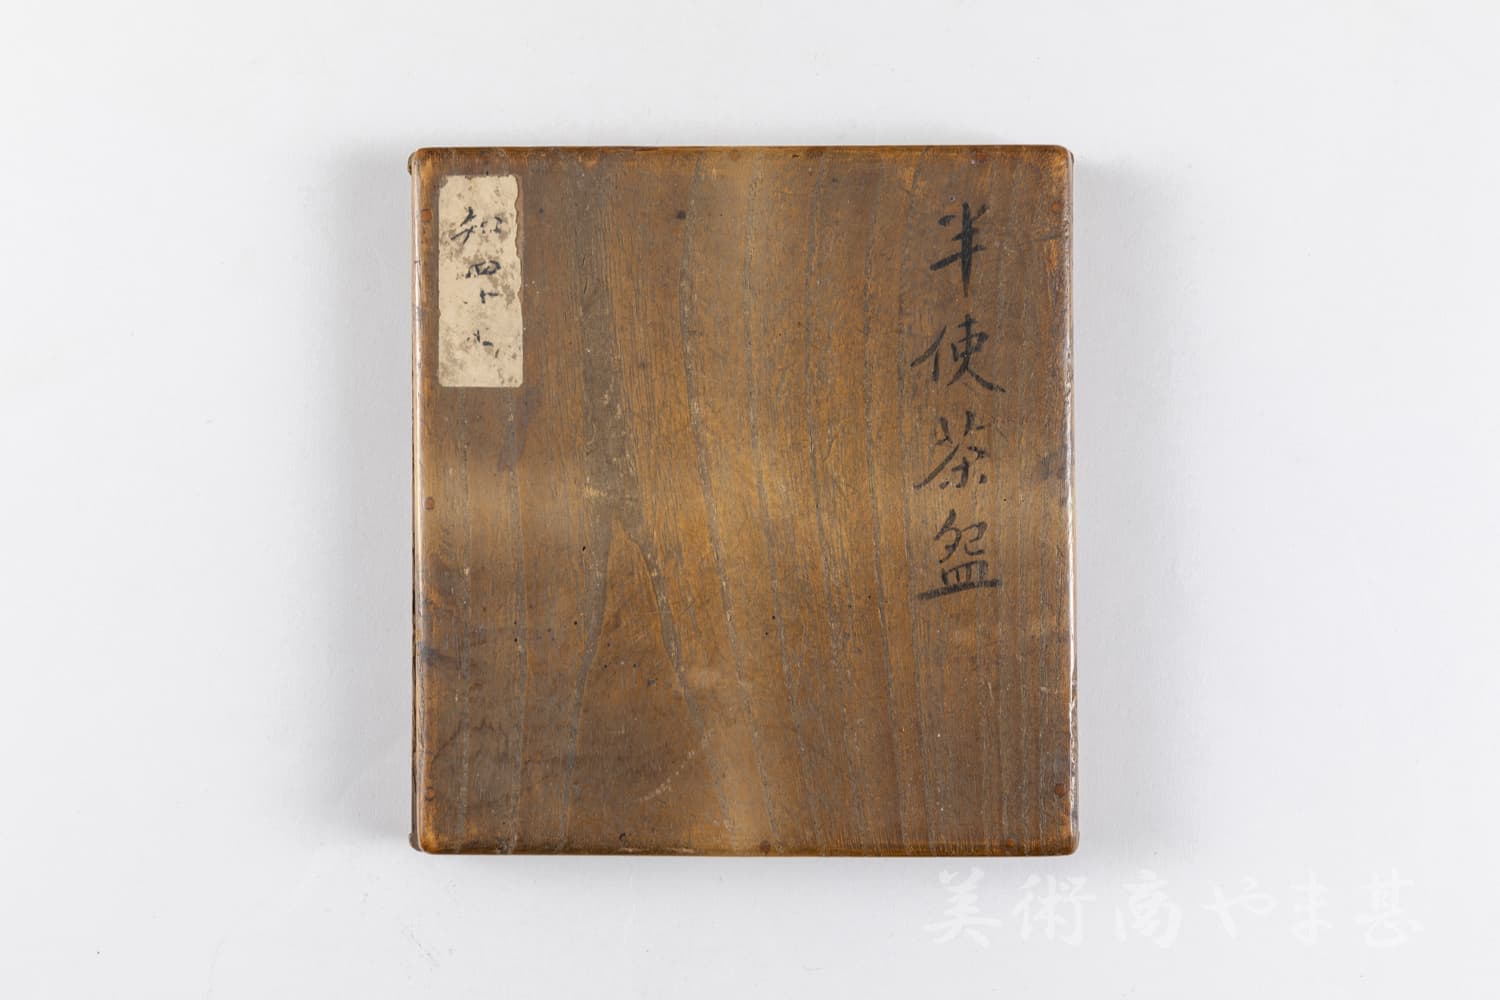 半使茶盌
美術商やま甚